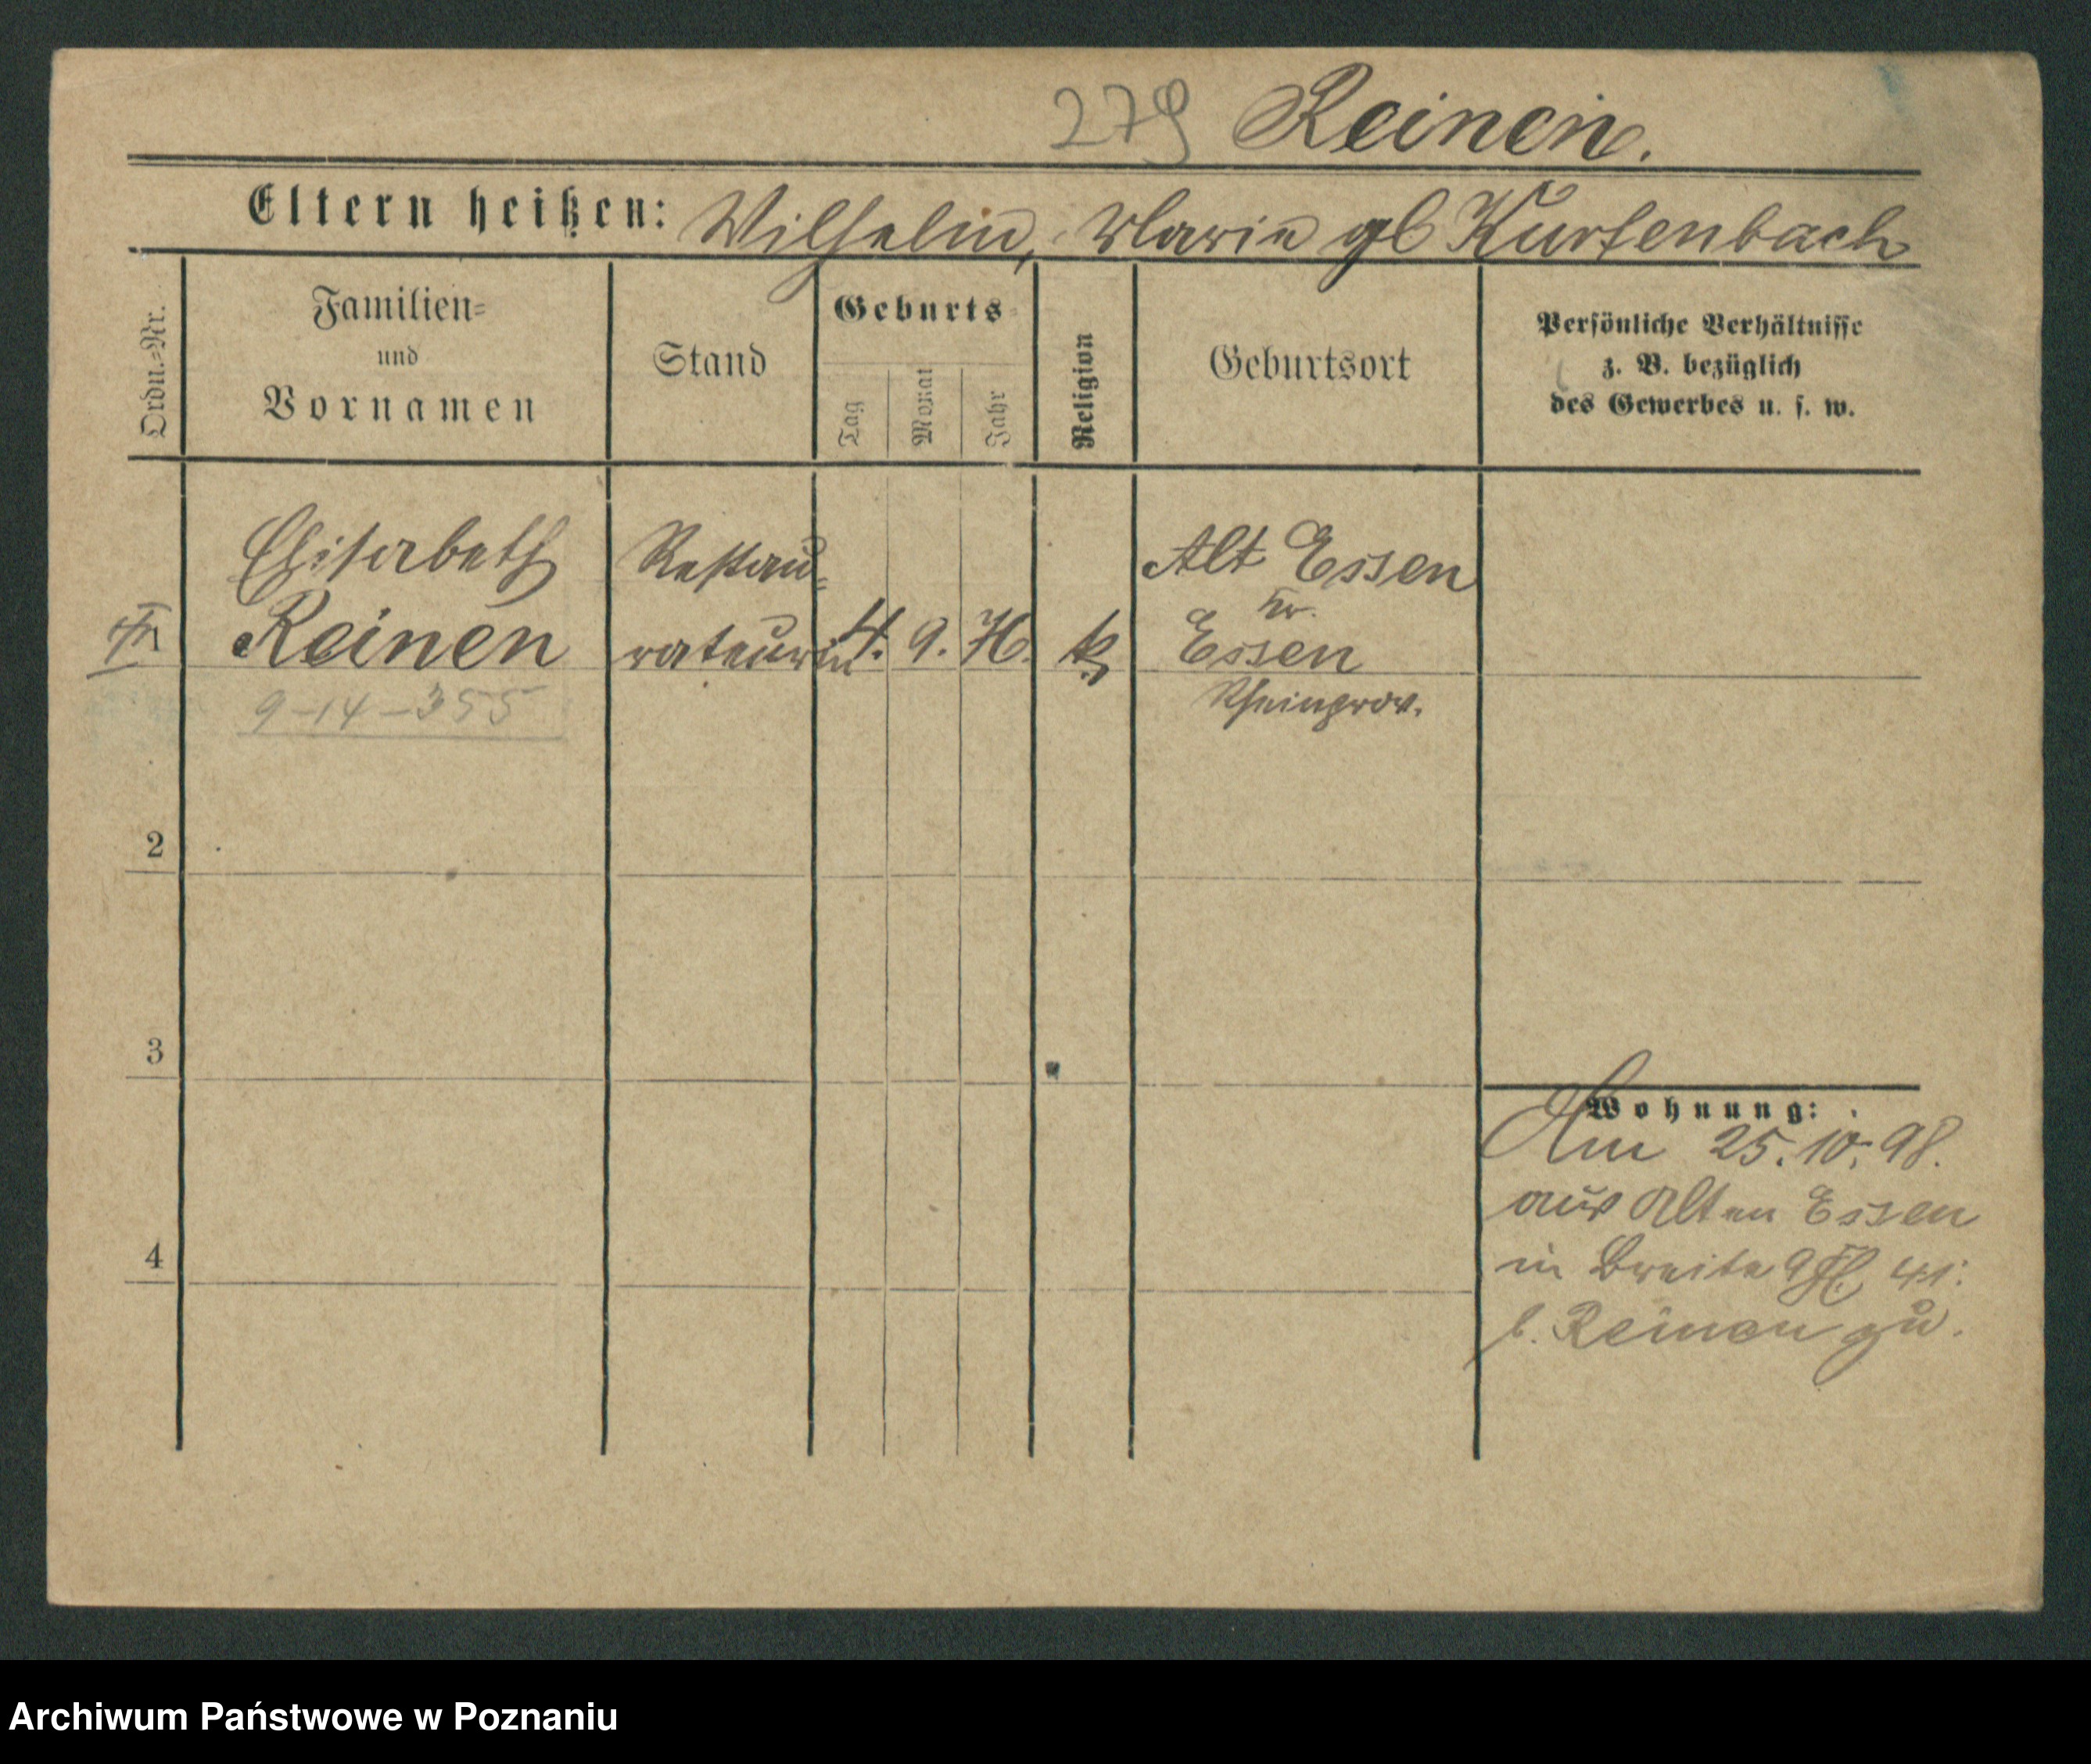 279 Reinen.
Eltern heißen: Wilhelm, Marie gb Kurtenbach
Ordn.-Nr.
Familien-
und
Vornamen
Stand
Geburts
Tag
Monat
Jahr
Religion
Geburtsort
Persönliche Verhältnisse
z. B. bezüglich
des Gewerbes u. s. w.
Elisabeth Restau- Alt Essen
Kr.
1 Reinen rateurin 4. 9. 76. k Essen
9-14-355 Rheinprov.
2
3
Wohnung:
Am 25.10.98.
aus Alten Essen
4
in Breite 41.
b. Reinen zu.
Archiwum Państwowe w Poznaniu